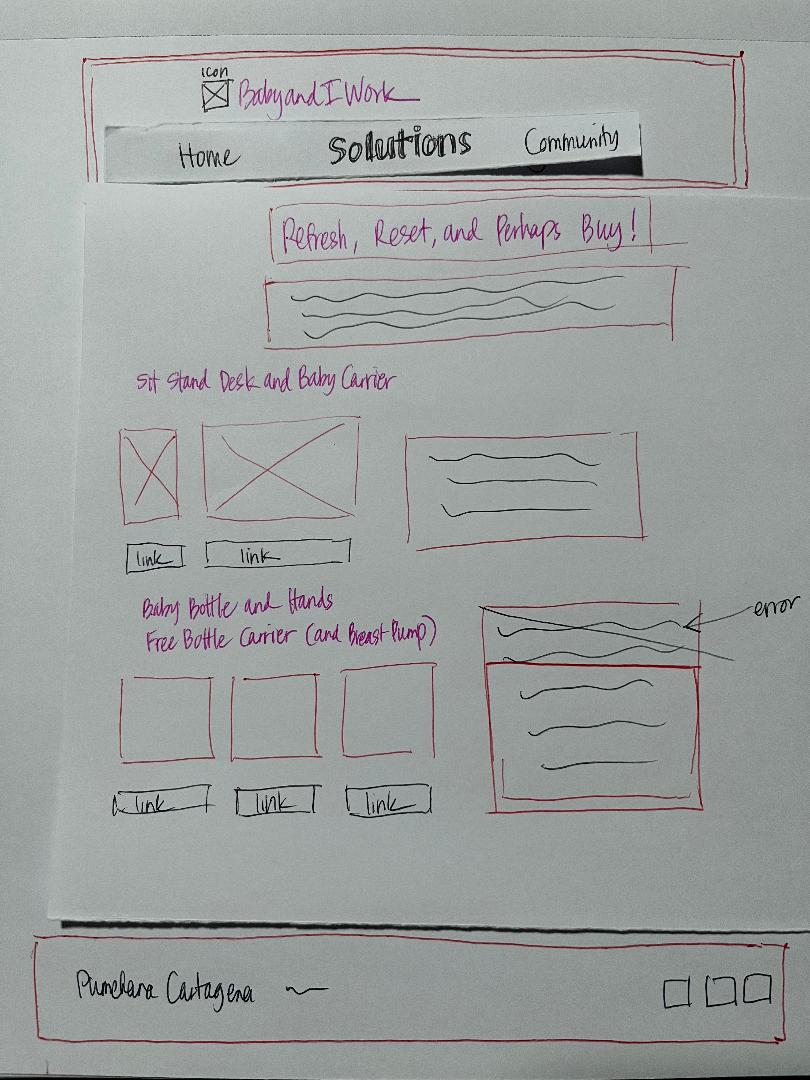 icon
BabyandIWork
Home Solutions Community
Refresh, Reset, and Perhaps Buy!
Sit Stand Desk and Baby Carrier
link link
error
Baby Bottle and Hands
Free Bottle Carrier (and Breast Pump)
link link link
Cartagena